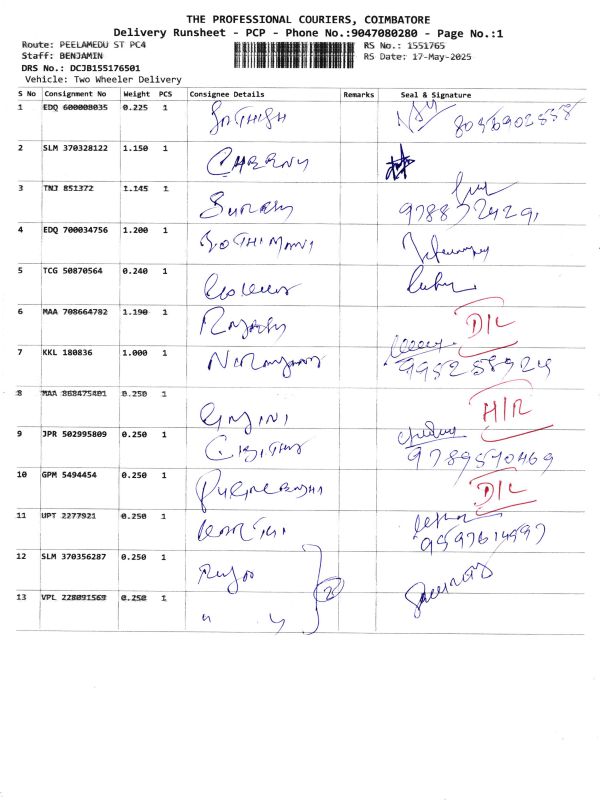 THE PROFESSIONAL COURIERS, COIMBATORE
Delivery Runsheet - PCP - Phone No.:9047080280 - Page No.:1
Route: PEELAMEDU ST PC4
RS No.: 1551765
Staff: BENJAMIN
RS Date: 17-May-2025
DRS No.: DCJB155176501
Vehicle: Two Wheeler Delivery
S No Consignment No Weight PCS Consignee Details Remarks Seal & Signature
1 EDQ 600008035 0.225 1 SATHISH
2 SLM 370328122 1.150 1
3 TNJ 851372 1.145 1 Suresh
4 EDQ 700034756 1.200 1 JOTHIMANI
5 TCG 50870564 0.240 1
6 MAA 708664782 1.190 1 Rajesh D/L
7 KKL 180836 1.000 1 Narayanan 995258924
8 MAA 868475401 0.250 1 H/R
9 JPR 502995809 0.250 1 9789570469
10 GPM 5494454 0.250 1 D/L
11 UPT 2277921 0.250 1 9597614997
12 SLM 370356287 0.250 1
13 VPL 228091569 0.250 1 " " 2